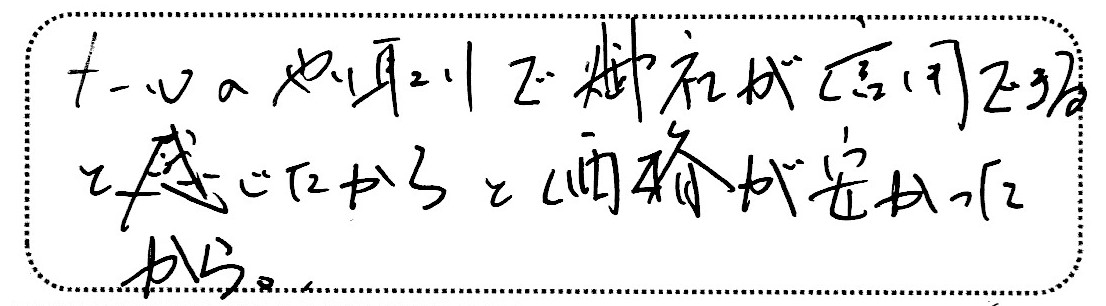 メールのやり取りで御社が信用できる
と感じたからと価格が安かった
から。